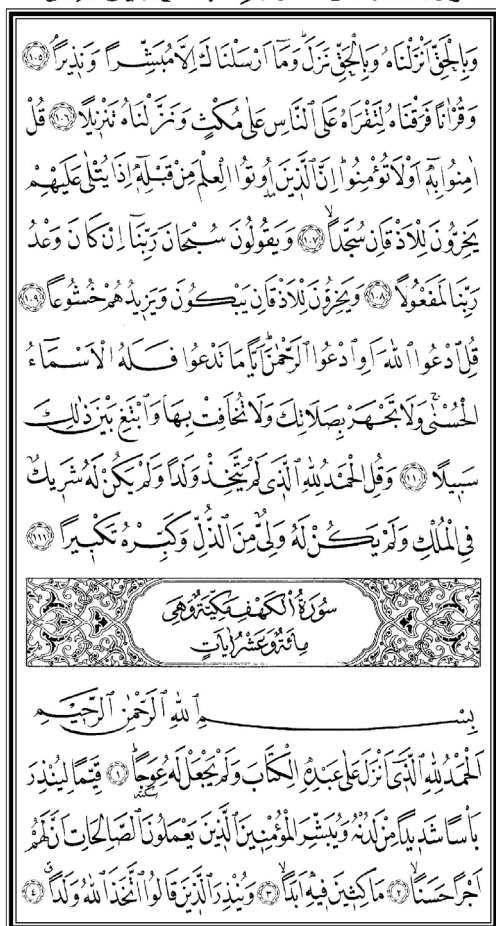 وَبِالْحَقِّ اَنْزَلْنَاهُ وَبِالْحَقِّ نَزَلَۜ وَمَٓا اَرْسَلْنَاكَ اِلَّا مُبَشِّراً وَنَذٖيراًۢ ﴿١٠٥﴾
وَقُرْاٰناً فَرَقْنَاهُ لِتَقْرَاَهُ عَلَى النَّاسِ عَلٰى مُكْثٍ وَنَزَّلْنَاهُ تَنْزٖيلاً ﴿١٠٦﴾ قُلْ
اٰمِنُوا بِهٖٓ اَوْ لَا تُؤْمِنُواۜ اِنَّ الَّذٖينَ اُو۫تُوا الْعِلْمَ مِنْ قَبْلِهٖٓ اِذَا يُتْلٰى عَلَيْهِمْ
يَخِرُّونَ لِلْاَذْقَانِ سُجَّداًۙ ﴿١٠٧﴾ وَيَقُولُونَ سُبْحَانَ رَبِّنَٓا اِنْ كَانَ وَعْدُ
رَبِّنَا لَمَفْعُولاً ﴿١٠٨﴾ وَيَخِرُّونَ لِلْاَذْقَانِ يَبْكُونَ وَيَزٖيدُهُمْ خُشُوعاً ﴿١٠٩﴾
قُلِ ادْعُوا اللّٰهَ اَوِ ادْعُوا الرَّحْمٰنَۜ اَياًّ مَا تَدْعُوا فَلَهُ الْاَسْمَٓاءُ
الْحُسْنٰىۚ وَلَا تَجْهَرْ بِصَلَاتِكَ وَلَا تُخَافِتْ بِهَا وَابْتَغِ بَيْنَ ذٰلِكَ
سَبٖيلاً ﴿١١٠﴾ وَقُلِ الْحَمْدُ لِلّٰهِ الَّذٖي لَمْ يَتَّخِذْ وَلَداً وَلَمْ يَكُنْ لَهُ شَرٖيكٌ
فِي الْمُلْكِ وَلَمْ يَكُنْ لَهُ وَلِيٌّ مِنَ الذُّلِّ وَكَبِّرْهُ تَكْبٖيراً ﴿١١١﴾
سُورَةُ الْكَهْفِ مَكِّيَّةٌ وَهِيَ
مِائَةٌ وَعَشْرُ اٰيَاتٍ
بِسْمِ اللّٰهِ الرَّحْمٰنِ الرَّحٖيمِ
اَلْحَمْدُ لِلّٰهِ الَّذٖٓي اَنْزَلَ عَلٰى عَبْدِهِ الْكِتَابَ وَلَمْ يَجْعَلْ لَهُ عِوَجاًۜ ﴿١﴾ قَيِّماً لِيُنْذِرَ
بَأْساً شَدٖيداً مِنْ لَدُنْهُ وَيُبَشِّرَ الْمُؤْمِنٖينَ الَّذٖينَ يَعْمَلُونَ الصَّالِحَاتِ اَنَّ لَهُمْ
اَجْراً حَسَناًۙ ﴿٢﴾ مَاكِثٖينَ فٖيهِ اَبَداًۙ ﴿٣﴾ وَيُنْذِرَ الَّذٖينَ قَالُوا اتَّخَذَ اللّٰهُ وَلَداًۗ ﴿٤﴾